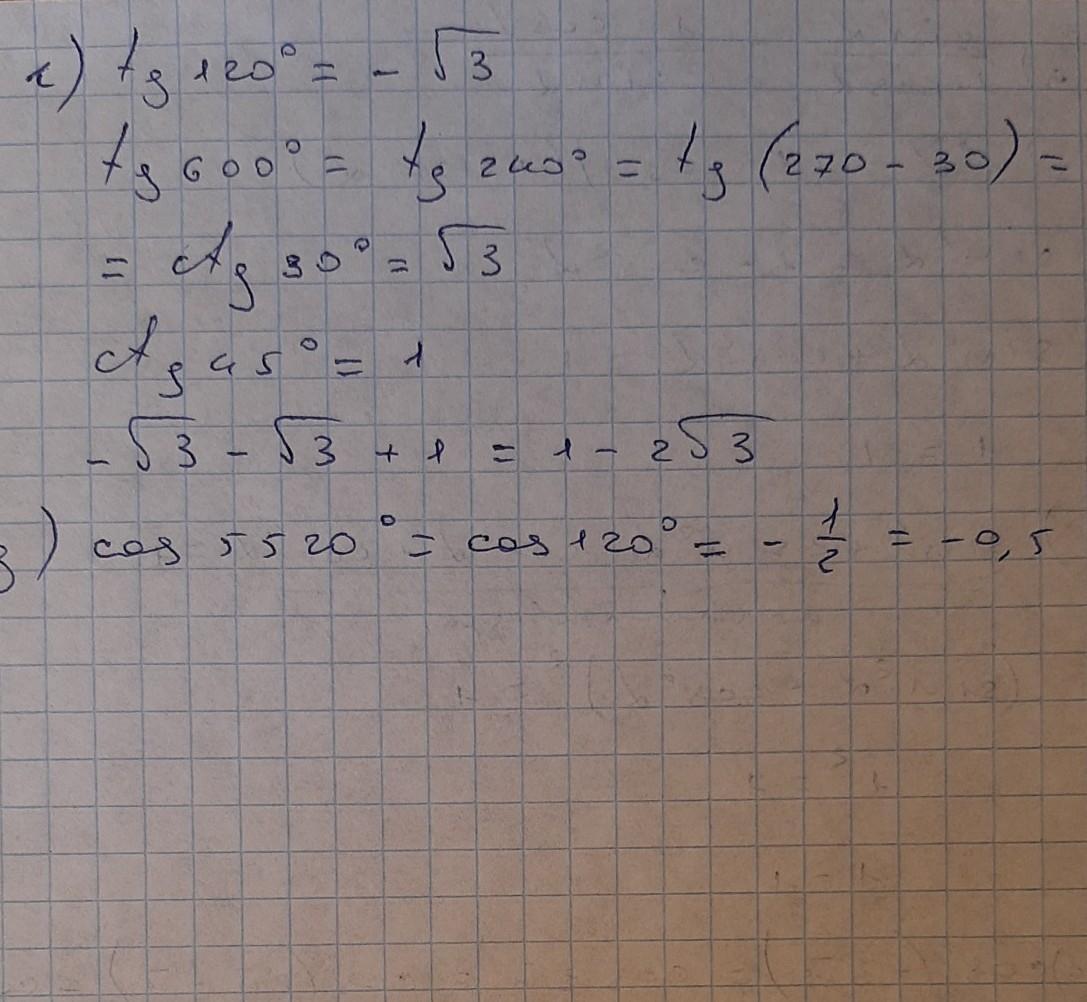 г) tg 120° = - √3
tg 600° = tg 240° = tg (270 - 30) =
= ctg 30° = √3
ctg 45° = 1
- √3 - √3 + 1 = 1 - 2√3
з) cos 5520° = cos 120° = - 1/2 = -0,5